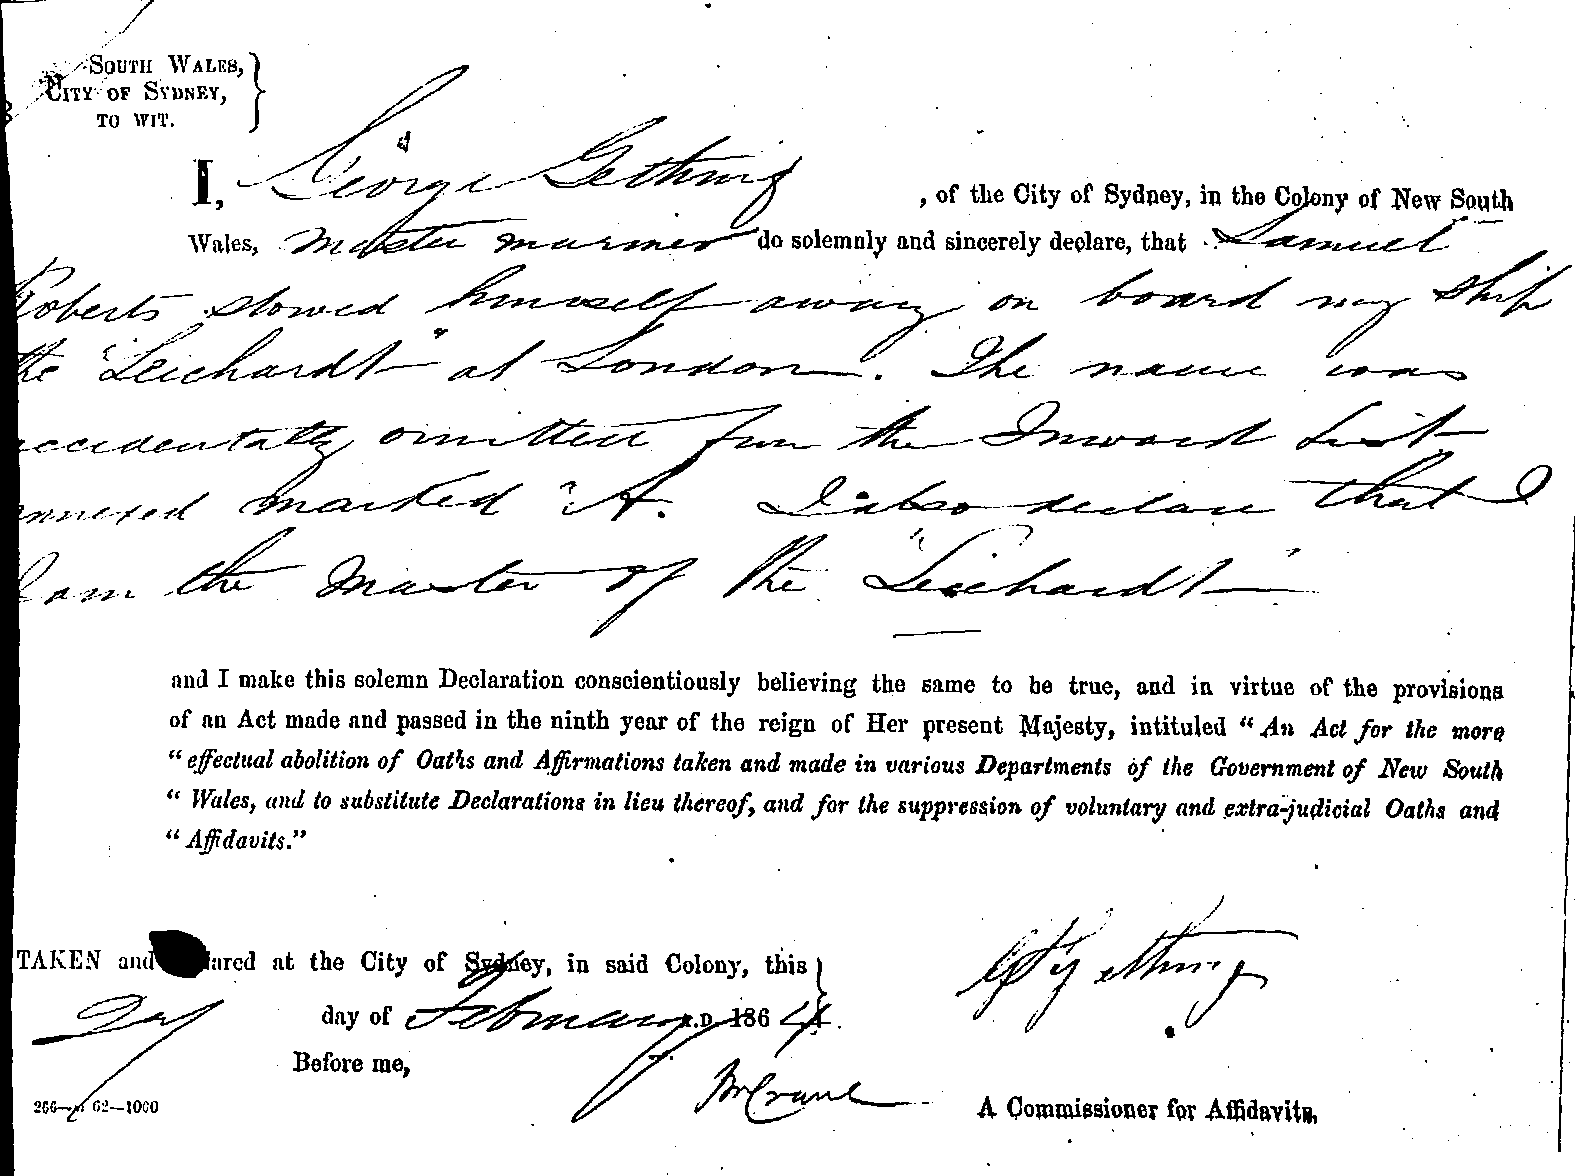 SOUTH WALES,
CITY OF SYDNEY,
TO WIT.
I, George Gething , of the City of Sydney, in the Colony of New South
Wales, Master Mariner do solemnly and sincerely declare, that Samuel
Roberts stowed himself away on board my ship
the "Leichardt" at London. The name was
accidentally omitted from the Inward List
annexed marked "A. I also declare that I
I am the Master of the "Leichardt"
and I make this solemn Declaration conscientiously believing the same to be true, and in virtue of the provisions
of an Act made and passed in the ninth year of the reign of Her present Majesty, intituled "An Act for the more
"effectual abolition of Oaths and Affirmations taken and made in various Departments of the Government of New South
"Wales, and to substitute Declarations in lieu thereof, and for the suppression of voluntary and extra-judicial Oaths and
"Affidavits."
TAKEN and lared at the City of Sydney, in said Colony, this
day of February A.D. 1864.
G Gething
Before me,
A Commissioner for Affidavits.
266— 62—1000